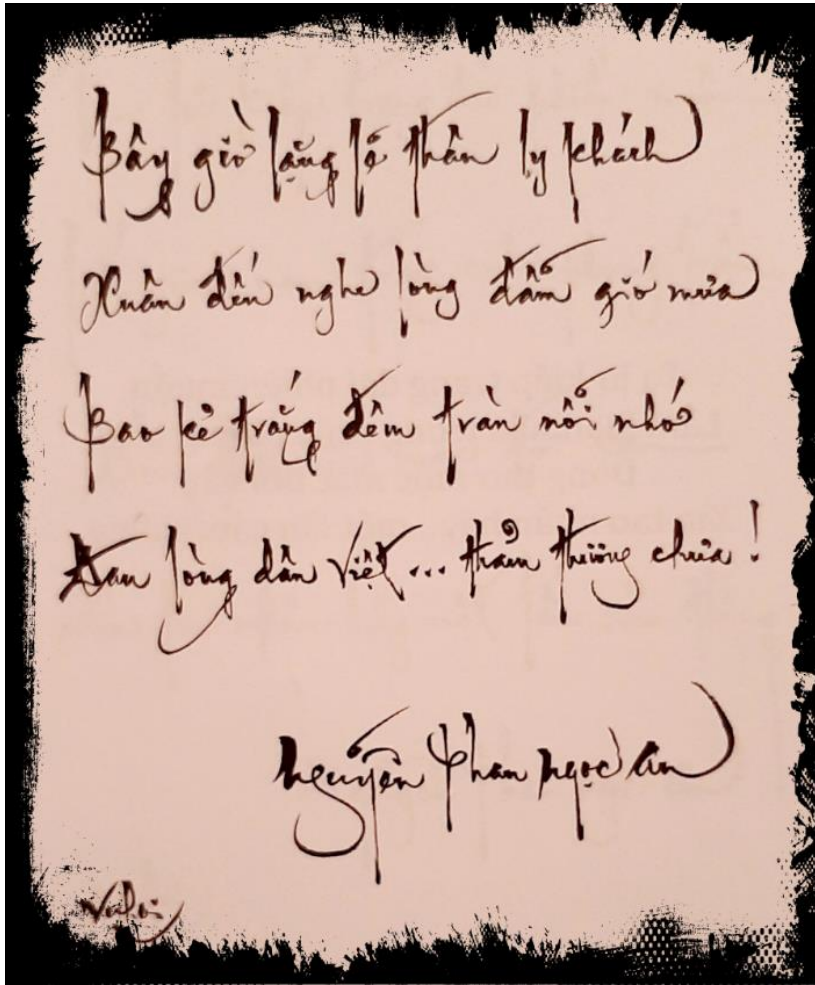 Bây giờ lặng lẽ thân ly khách
Xuân đến nghe lòng đẫm gió mưa
Bao kẻ trắng đêm tràn nỗi nhớ
Đau lòng dân Việt... thảm thương chưa!
Nguyễn Phan Ngọc An